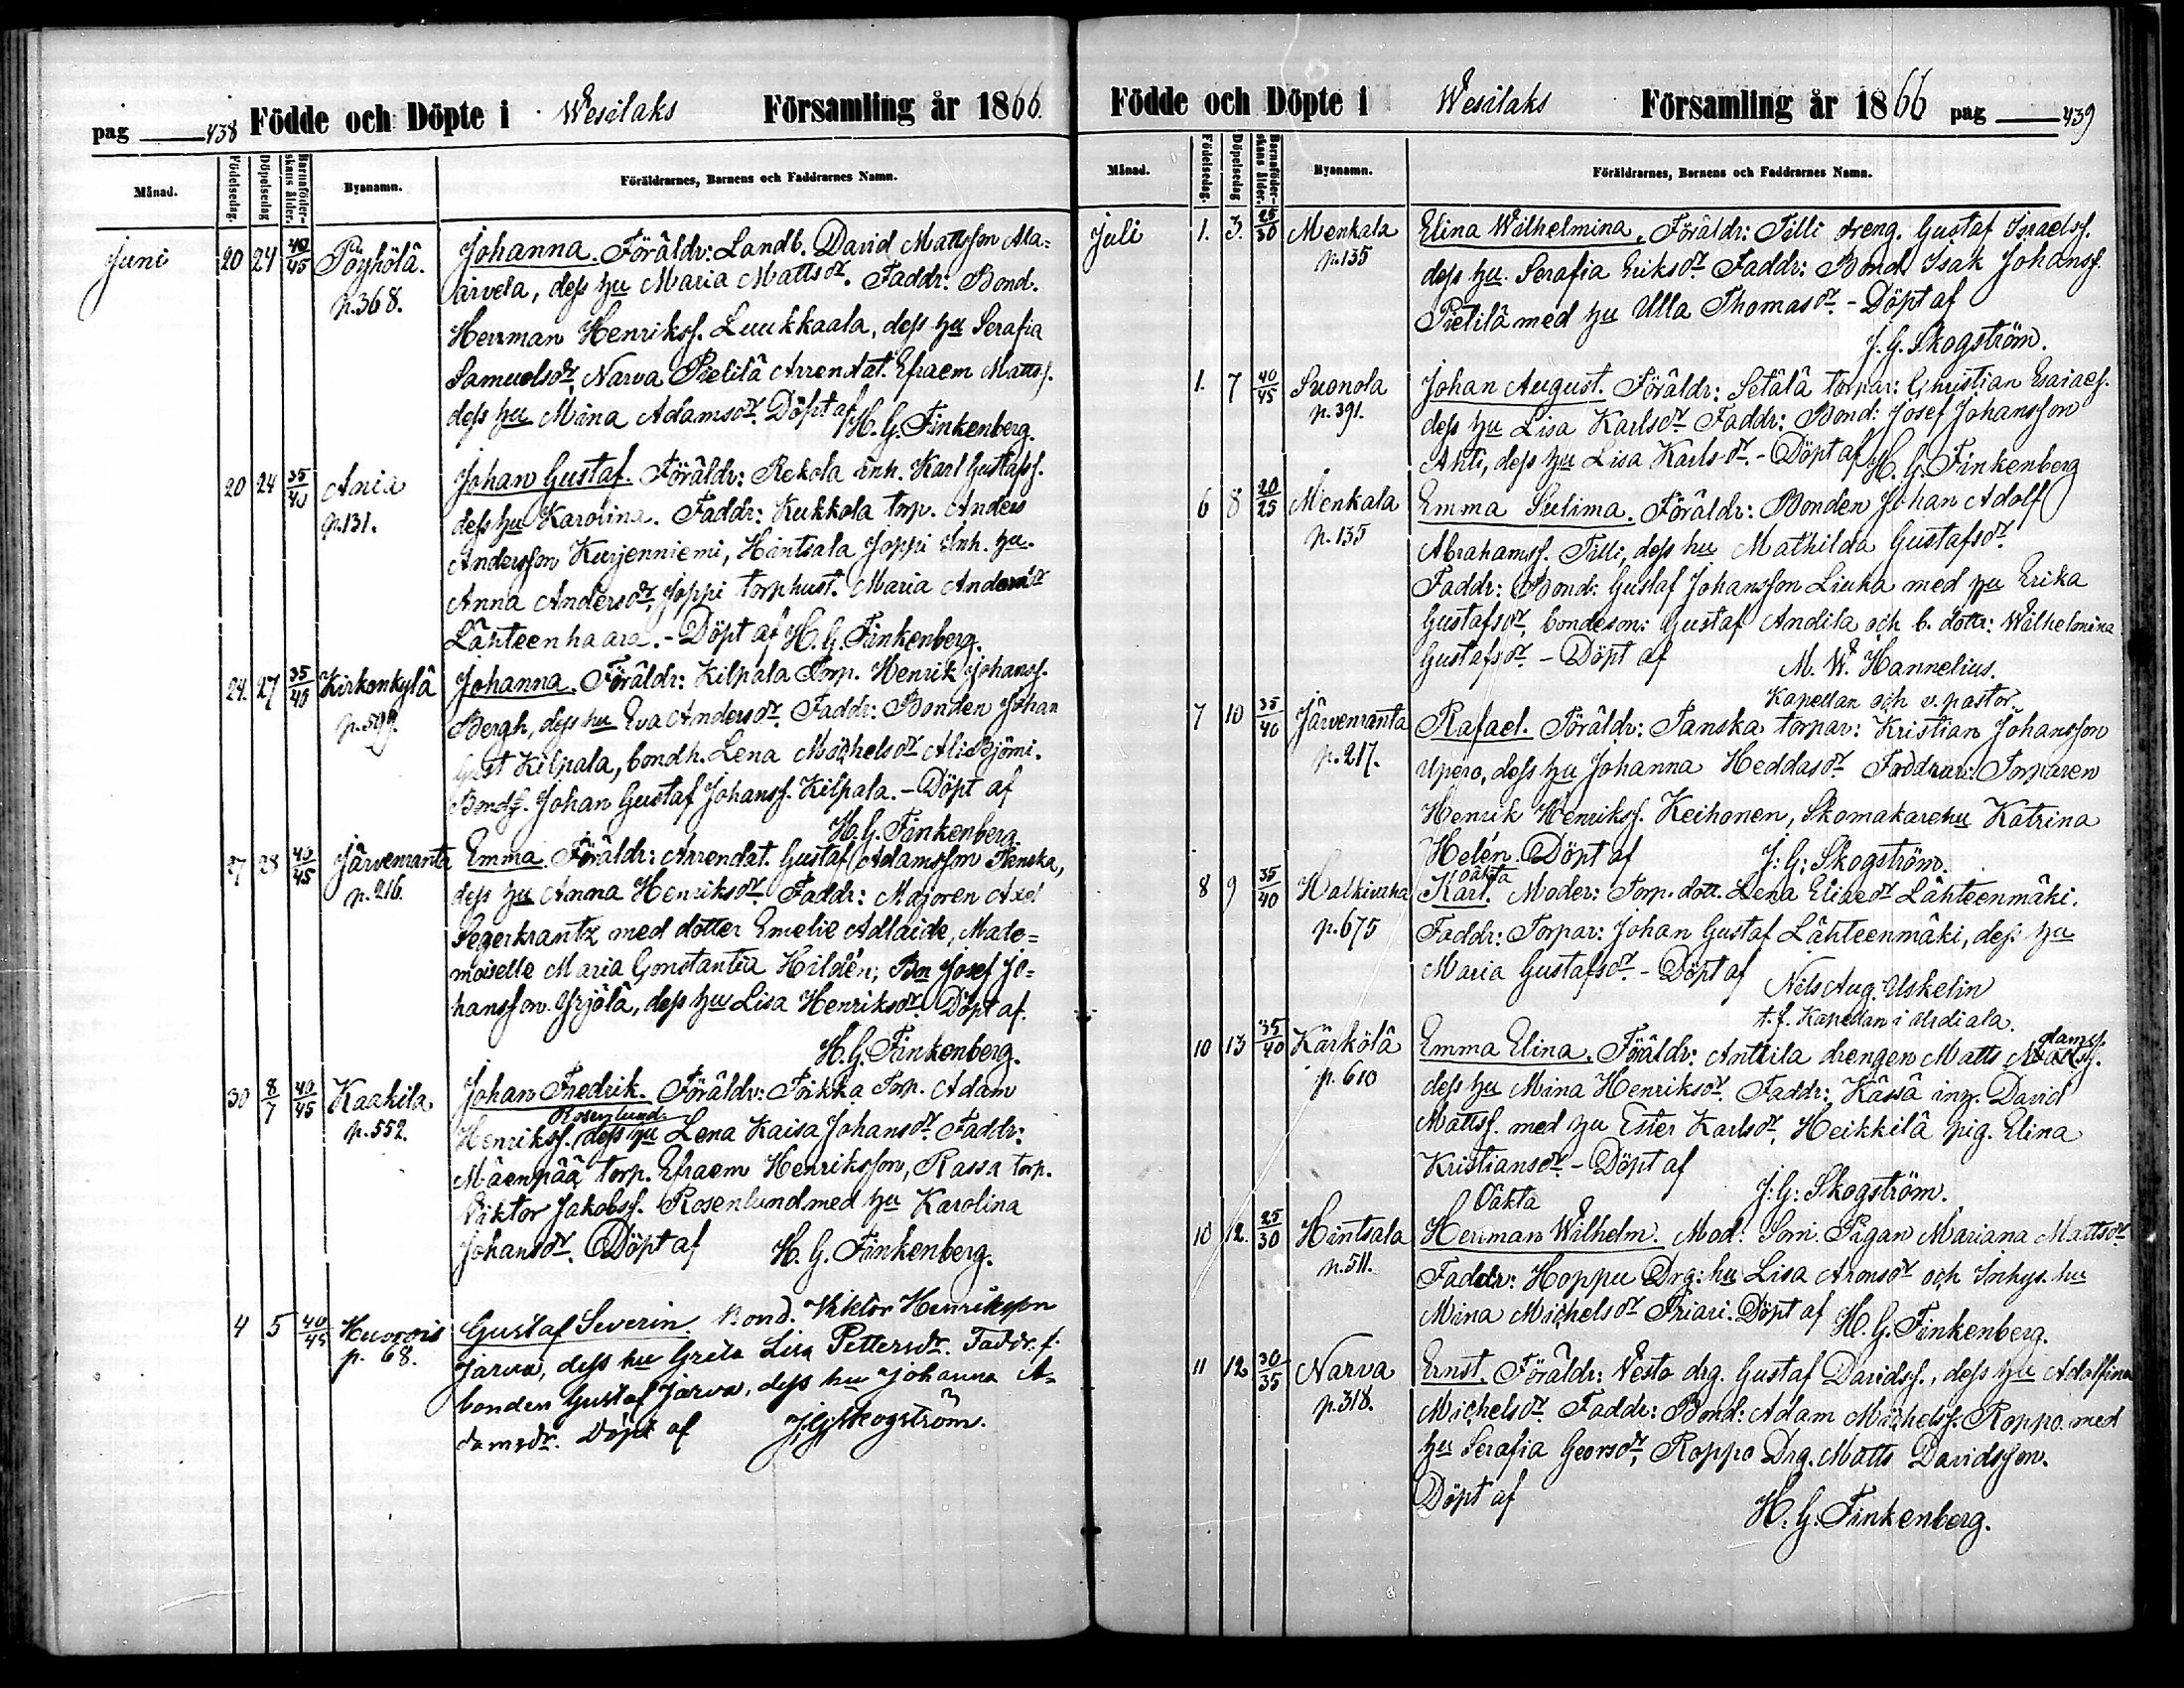 pag 438 Födde och Döpte i Wesilaks Församling år 1866.
Månad. Födelsedag. Döpelsedag Barnaföderskans ålder. Byanamn. Föräldrarnes, Barnens och Faddrarnes Namn.
Juni 20 24 40/45 Pöyhölä. Johanna. Föräldr: Landb. David Mattsson Ala=
p.368. järvela, dess hu Maria Mattsdr. Faddr: Bond.
Herrman Henrikss. Luukkaala, dess hu Serafia
Samuelsdr, Narva Pietilä Arrendat. Efraem Matts.
dess hu Mina Adamsdr. Döpt af
H. G. Finkenberg.
20 24 35/40 Ania Johan Gustaf. Föräldr: Rekola inh. Karl Gustafss.
p.131. dess hu Karolina. Faddr: Kukkola torp. Anders
Andersson Kurjenniemi, Hintsala Joppi Inh. hu.
Anna Andersdr, Joppi torphust. Maria Andersdr
Lähteenhaara. - Döpt af H. G. Finkenberg.
24. 27 35/40 Kirkonkylä Johanna. Föräldr: Kilpala Torp. Henrik Johanss.
p.599. Bergh, dess hu Eva Andersdr. Faddr: Bonden Johan
Gust Kilpala, bondh. Lena Michelsdr AliBjörni.
Bonds. Johan Gustaf Johanss. Kilpala. - Döpt af
H. G. Finkenberg.
27 28 40/45 Järvenranta Emma. Föräldr: Arrendat. Gustaf Adamsson Tanska,
p.216. dess hu Anna Henriksdr. Faddr: Majoren Axel
Segerkrantz med dotter Emelie Adlaide, Made=
moiselle Maria Constantia Hildén; Bn Josef Jo=
hansson Yrjölä, dess hu Lisa Henriksdr. Döpt af.
H. G. Finkenberg.
30 8/7 40/45 Kaakila Johan Fredrik. Föräldr: Torkka Torp. Adam
Rosenlund
p.552. Henrikss. dess hu Lena Kaisa Johansdr. Faddr:
Mäenpää torp. Efraem Henriksson, Rassa torp.
Viktor Jakobss. Rosenlund med hu Karolina
Johansdr. Döpt af H. G. Finkenberg.
4 5 40/45 Huorois Gustaf Severin. Bond. Viktor Henriksson
p. 68. Jarva, dess hu Greta Lisa Pettersdr. Faddr. f.
bonden Gustaf Jarva, dess hu Johanna A=
damsdr. Döpt af J. G. Skogström.
Födde och Döpte i Wesilaks Församling år 1866 pag 439
Månad. Födelsedag. Döpelsedag Barnaföderskans ålder. Byanamn. Föräldrarnes, Barnens och Faddrarnes Namn.
Juli 1. 3. 25/30 Menkala Elina Wilhelmina. Föräldr: Tilli dreng. Gustaf Israelss.
p.135 dess hu. Serafia Eriksdr Faddr: Bond. Isak Johanss.
Pietilä med hu Ulla Thomasdr. - Döpt af
J. G. Skogström.
1. 7 40/45 Suonola Johan August. Föräldr: Setälä torpar: Christian Esaiaes.
p.391. dess hu Lisa Karlsdr Faddr: Bond: Josef Johansson
Ahti, dess hu Lisa Karls dr. - Döpt af H. G. Finkenberg
6 8 20/25 Menkala Emma Sulima. Föräldr: Bonden Johan Adolf
p.135 Abrahamss. Tilli, dess hu Mathilda Gustafsdr.
Faddr: Bond: Gustaf Johansson Liuha med hu Erika
Gustafsdr, bondeson: Gustaf Andila och b. dottr: Wilhelmina
Gustafsdr. - Döpt af M. W. Hannelius.
Kapellan och v. pastor.
7 10 35/40 Järvenranta Rafael. Föräldr: Tanska torpar: Kristian Johansson
p.217. Upero, dess hu Johanna Heddasdr Faddrar: Torparen
Henrik Henrikss. Keihonen, Skomakarehu Katrina
Helén. Döpt af J: G: Skogström.
oäkta
8 9 35/40 Halkivaha Karl. Moder: Torp. dott. Lena Eliaedr Lähteenmäki.
p.675 Faddr: Torpar: Johan Gustaf Lähteenmäki, dess hu
Maria Gustafsdr. - Döpt af Nils Aug. Uskelin
t. f. Kapellan i Urdiala.
10 13 35/40 Kärkölä Emma Elina. Föräldr: Anttila drengen Matts
p. 610 dess hu Mina Henriksdr. Faddr: Kässä inh. David
Mattss. med hu Ester Karlsdr, Heikkilä pig. Elina
Kristiansdr. - Döpt af J: G: Skogström.
Oäkta
10 12. 25/30 Hintsala Herman Wilhelm. Mod: Somi. Pigan Mariana Mattsdr
p.511. Faddr: Hoppu Drg: hu Lisa Aronsdr och Inhys. hu
Mina Michelsdr Friari. Döpt af H. G. Finkenberg.
11 12 30/35 Narva Ernst. Föräldr: Vesto drg. Gustaf Davidss., dess hu Adolfina
p.318. Michelsdr Faddr: Bond: Adam Michelss. Roppo. med
hu Serafia Georsdr, Roppo Drg. Matts Davidsson.
Döpt af
H. G. Finkenberg.